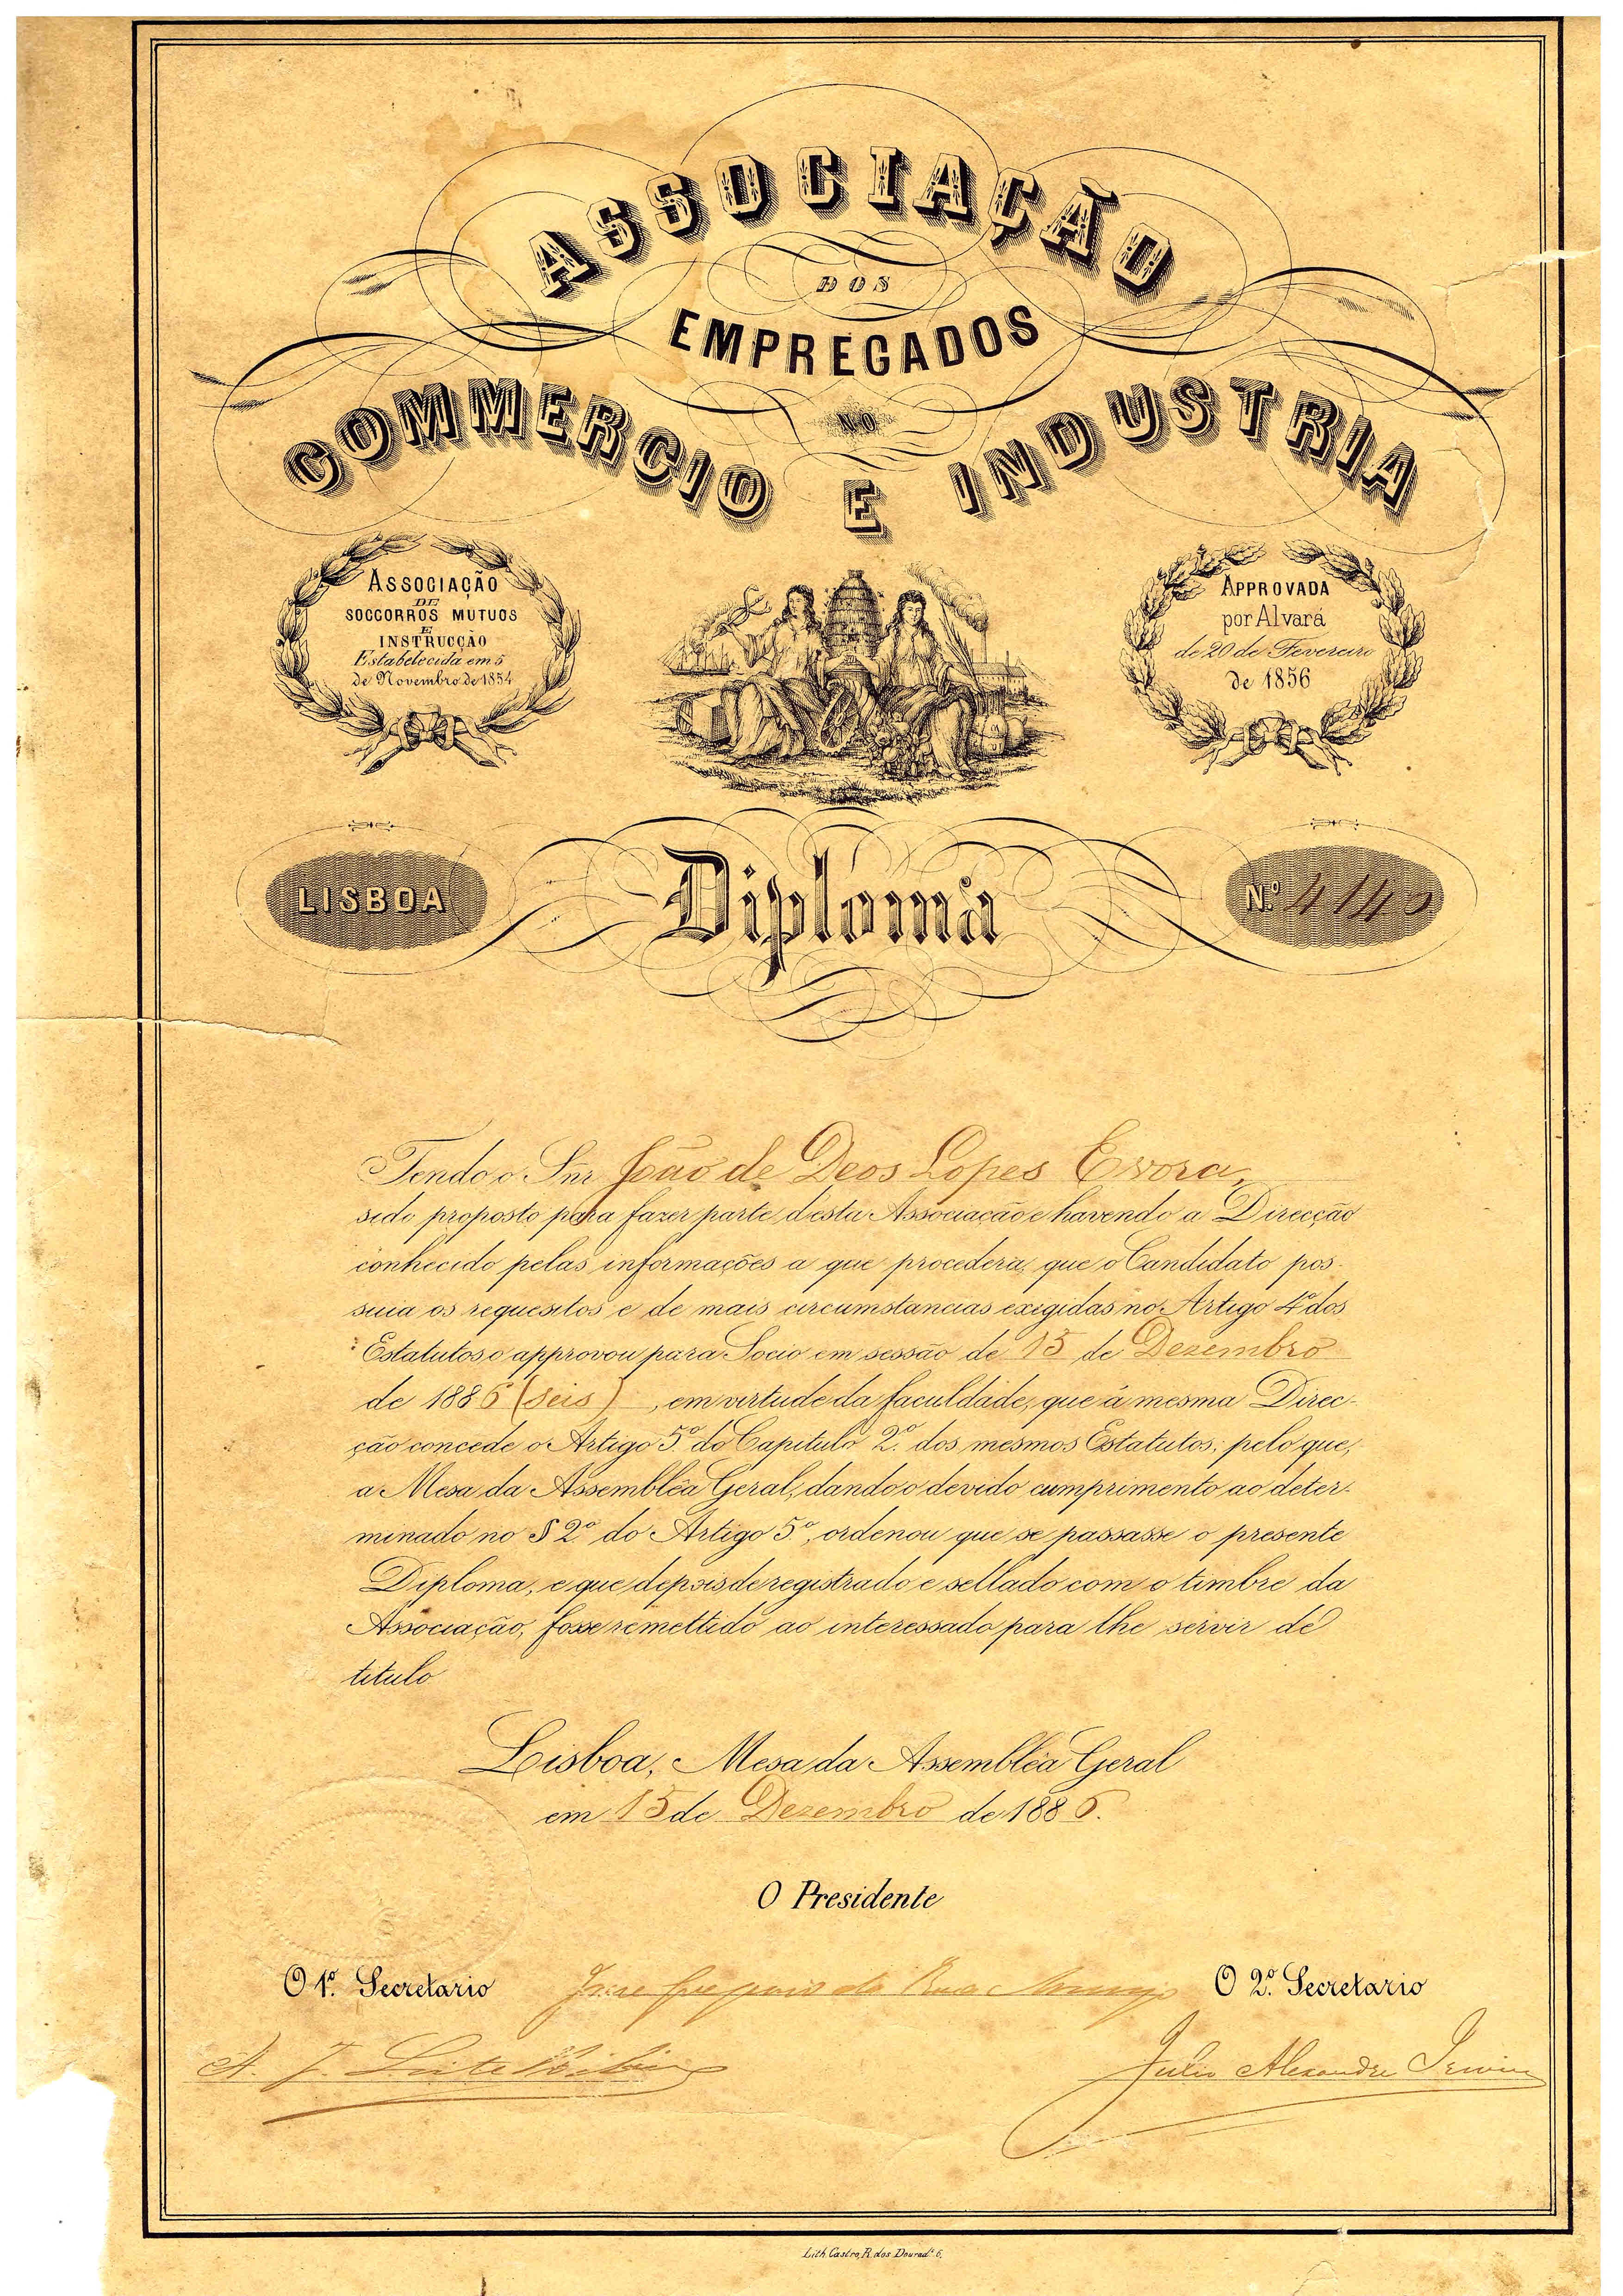 ASSOCIAÇÃO
DOS
EMPREGADOS
NO
COMMERCIO E INDUSTRIA
ASSOCIAÇÃO
DE
SOCCORROS MUTUOS
E
INSTRUCÇÃO
Estabelecida em 5
de Novembro de 1854
APPROVADA
por Alvará
de 20 de Fevereiro
de 1856
LISBOA
Diploma
N.º 4140
Tendo o Snr João de Deos Lopes Evora,
sido proposto para fazer parte d'esta Associação e havendo a Direcção
conhecido pelas informações a que procedera, que o Candidato pos-
suia os requesitos e de mais circumstancias exigidas no Artigo 4º dos
Estatutos o approvou para Socio em sessão de 15 de Dezembro
de 1886 (seis), em virtude da faculdade, que á mesma Direc-
ção concede o Artigo 5.º do Capitulo 2.º dos mesmos Estatutos; pelo que,
a Mesa da Assembléa Geral, dando o devido cumprimento ao deter-
minado no § 2.º do Artigo 5.º, ordenou que se passasse o presente
Diploma, e que depois de registrado e sellado com o timbre da
Associação, fosse remettido ao interessado para lhe servir de
titulo
Lisboa, Mesa da Assembléa Geral
em 15 de Dezembro de 1886.
O Presidente
O 1º. Secretario
O 2º. Secretario
A. J. Leite
Julio Alexandre
Lith. Castro, R. dos Dourad.s 6.